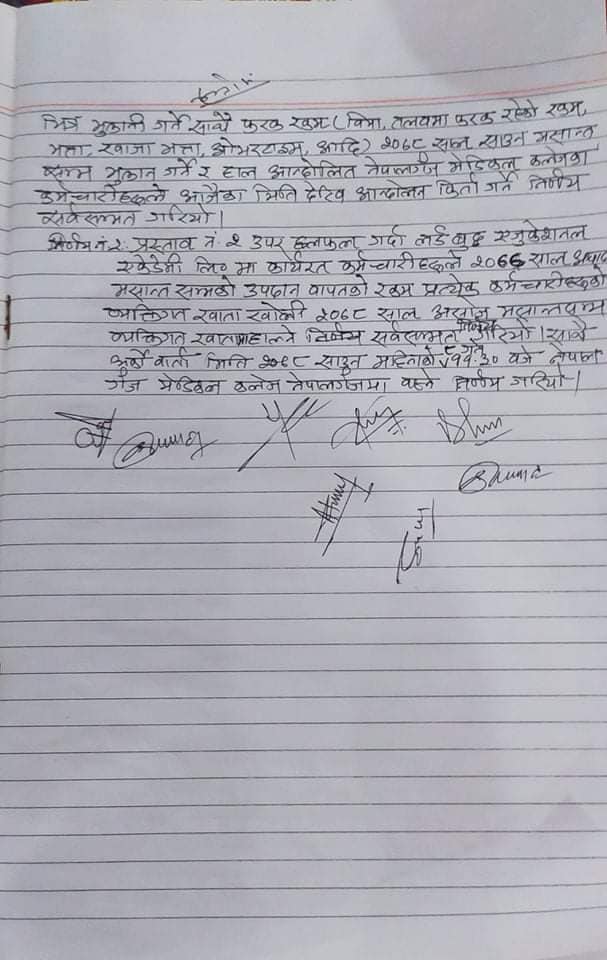 भित्र भुक्तानी गर्ने साथै फरक रकम (विमा, तलवमा फरक रहेको रकम,
भत्ता, खाजा भत्ता, ओभरटाइम, आदि) २०६८ साल साउन मसान्त
सम्म भुक्तान गर्ने र हाल आन्दोलित नेपालगंज मेडिकल कलेजका
कर्मचारीहरुले आजैका मिति देखि आन्दोलन फिर्ता गर्ने निर्णय
सर्वसम्मत गरियो।
निर्णय नं.२. प्रस्ताव नं. २ उपर छलफल गर्दा लर्ड बुद्ध एजुकेशनल
एकेडेमी लि० मा कार्यरत कर्मचारीहरुले २०६६ साल अषाढ
मसान्त सम्मको उपदान वापतको रकम प्रत्येक कर्मचारीहरुको
व्यक्तिगत खाता खोली २०६८ साल असोज मसान्तसम्म
व्यक्तिगत खातामा हाल्ने निर्णय सर्वसम्मत गरियो। साथै
अर्को वार्ता मिति २०६८ साउन महिनाको ११.३० वजे नेपाल
गंज मेडिकल कलेज नेपालगंजमा वस्ने निर्णय गरियो।